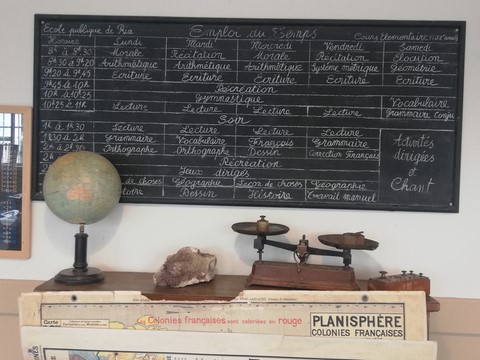 Ecole publique de Ria Emploi du Temps Cours Elementaire
Horaires Lundi Mardi Mercredi Vendredi Samedi
8h à 8h30 Morale Récitation Morale Récitation Elocution
8h50 à 9h20 Arithmétique Arithmétique Arithmétique Système métrique Géométrie
9h20 à 9h45 Ecriture Ecriture Ecriture Ecriture Ecriture
9h45 à 10h Récréation
10h à 10h25 Gymnastique Vocabulaire
10h25 à 11h Lecture Lecture Lecture Lecture Grammaire Conju
Soir
1h à 1h30 Lecture Lecture Lecture Lecture
1h30 à 2h Grammaire Vocabulaire Français Grammaire
2h à 2h30 Orthographe Orthographe Dessin Correction Français
Activités
dirigées
et
Chant
Récréation
Jeux dirigés
de choses Géographie Leçon de choses Géographie
Dessin Histoire Travail manuel
Carte
Les Colonies françaises sont coloriées en rouge
PLANISPHÈRE
COLONIES FRANÇAISES